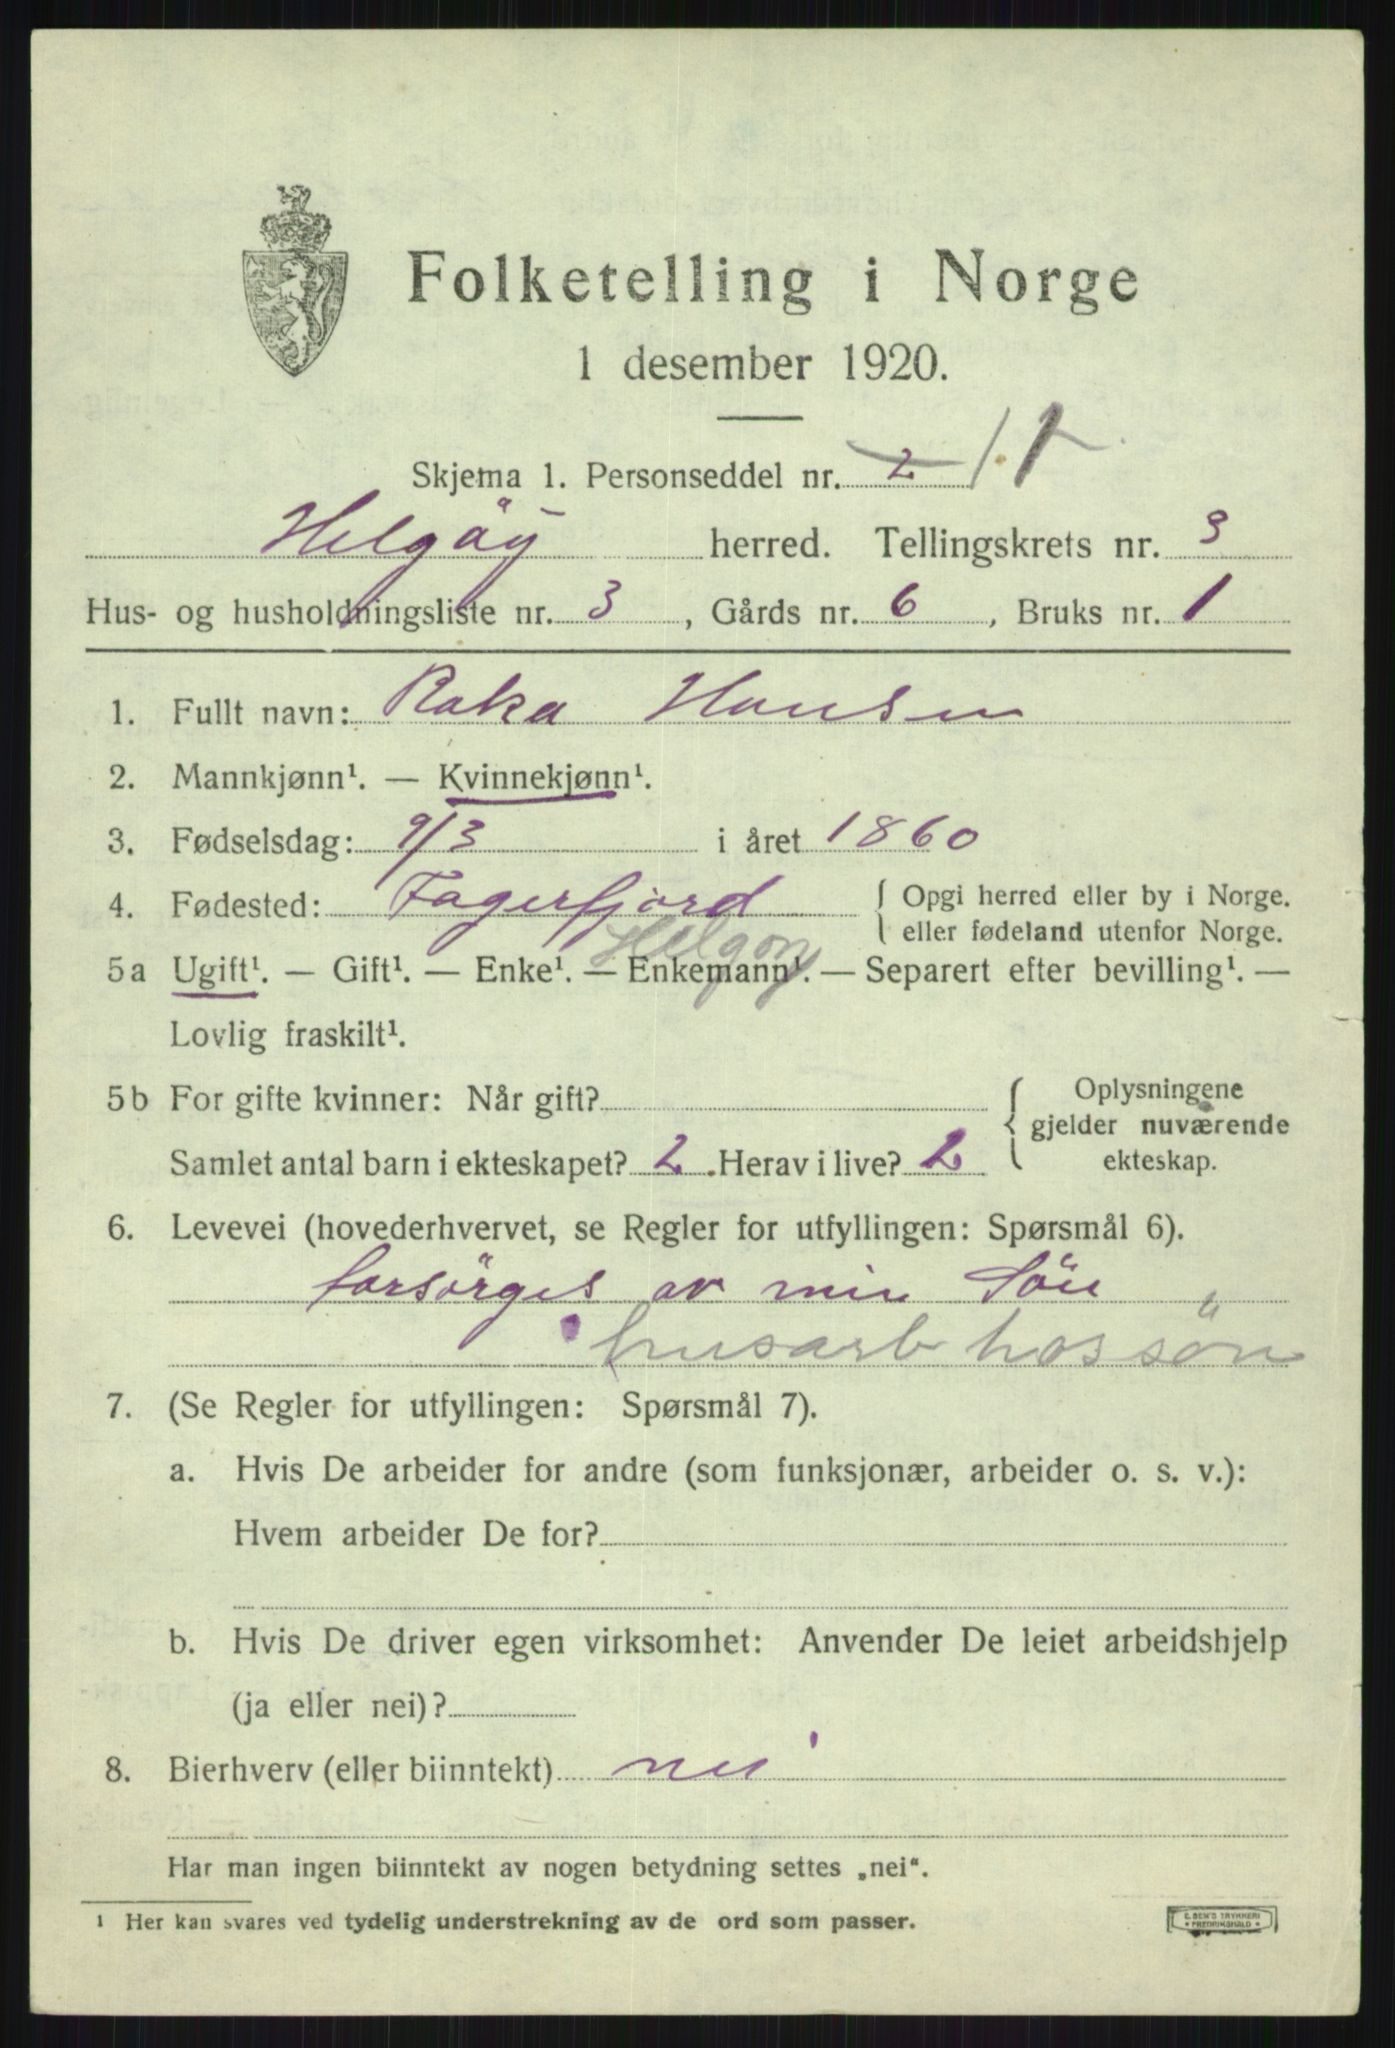 Folketelling i Norge
1 desember 1920.
Skjema 1. Personseddel nr. 2
Helgöy herred. Tellingskrets nr. 3
Hus- og husholdningsliste nr. 3, Gårds nr. 6, Bruks nr. 1
1. Fullt navn: Raka Hansen
2. Mannkjønn¹. — Kvinnekjønn¹.
3. Fødselsdag: 9/3 i året 1860
4. Fødested: Fagerfjord { Opgi herred eller by i Norge.
eller fødeland utenfor Norge.
Helgöy
5a Ugift¹. — Gift¹. — Enke¹. — Enkemann¹. — Separert efter bevilling¹. —
Lovlig fraskilt¹.
5b For gifte kvinner: Når gift? { Oplysningene
gjelder nuværende
ekteskap.
Samlet antal barn i ekteskapet? 2. Herav i live? 2
6. Levevei (hovederhvervet, se Regler for utfyllingen: Spørsmål 6).
forsörges av min Sön
husarb hos sön
7. (Se Regler for utfyllingen: Spørsmål 7).
a. Hvis De arbeider for andre (som funksjonær, arbeider o. s. v.):
Hvem arbeider De for?
b. Hvis De driver egen virksomhet: Anvender De leiet arbeidshjelp
(ja eller nei)?
8. Bierhverv (eller biinntekt) nei
Har man ingen biinntekt av nogen betydning settes „nei“.
¹ Her kan svares ved tydelig understrekning av de ord som passer.